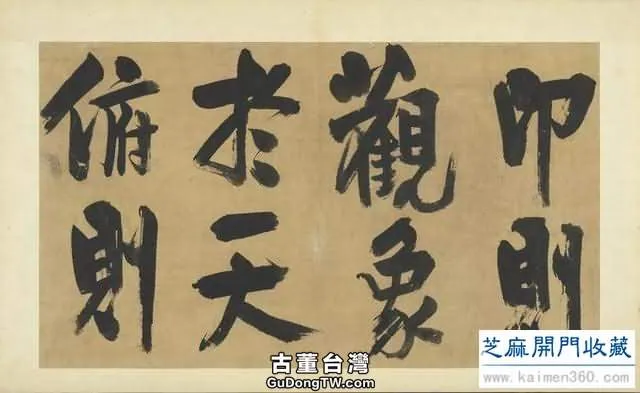 卬則
觀象
於天
俯則
芝麻開門收藏
www.kaimen360.com
古董台灣
GuDongTW.com